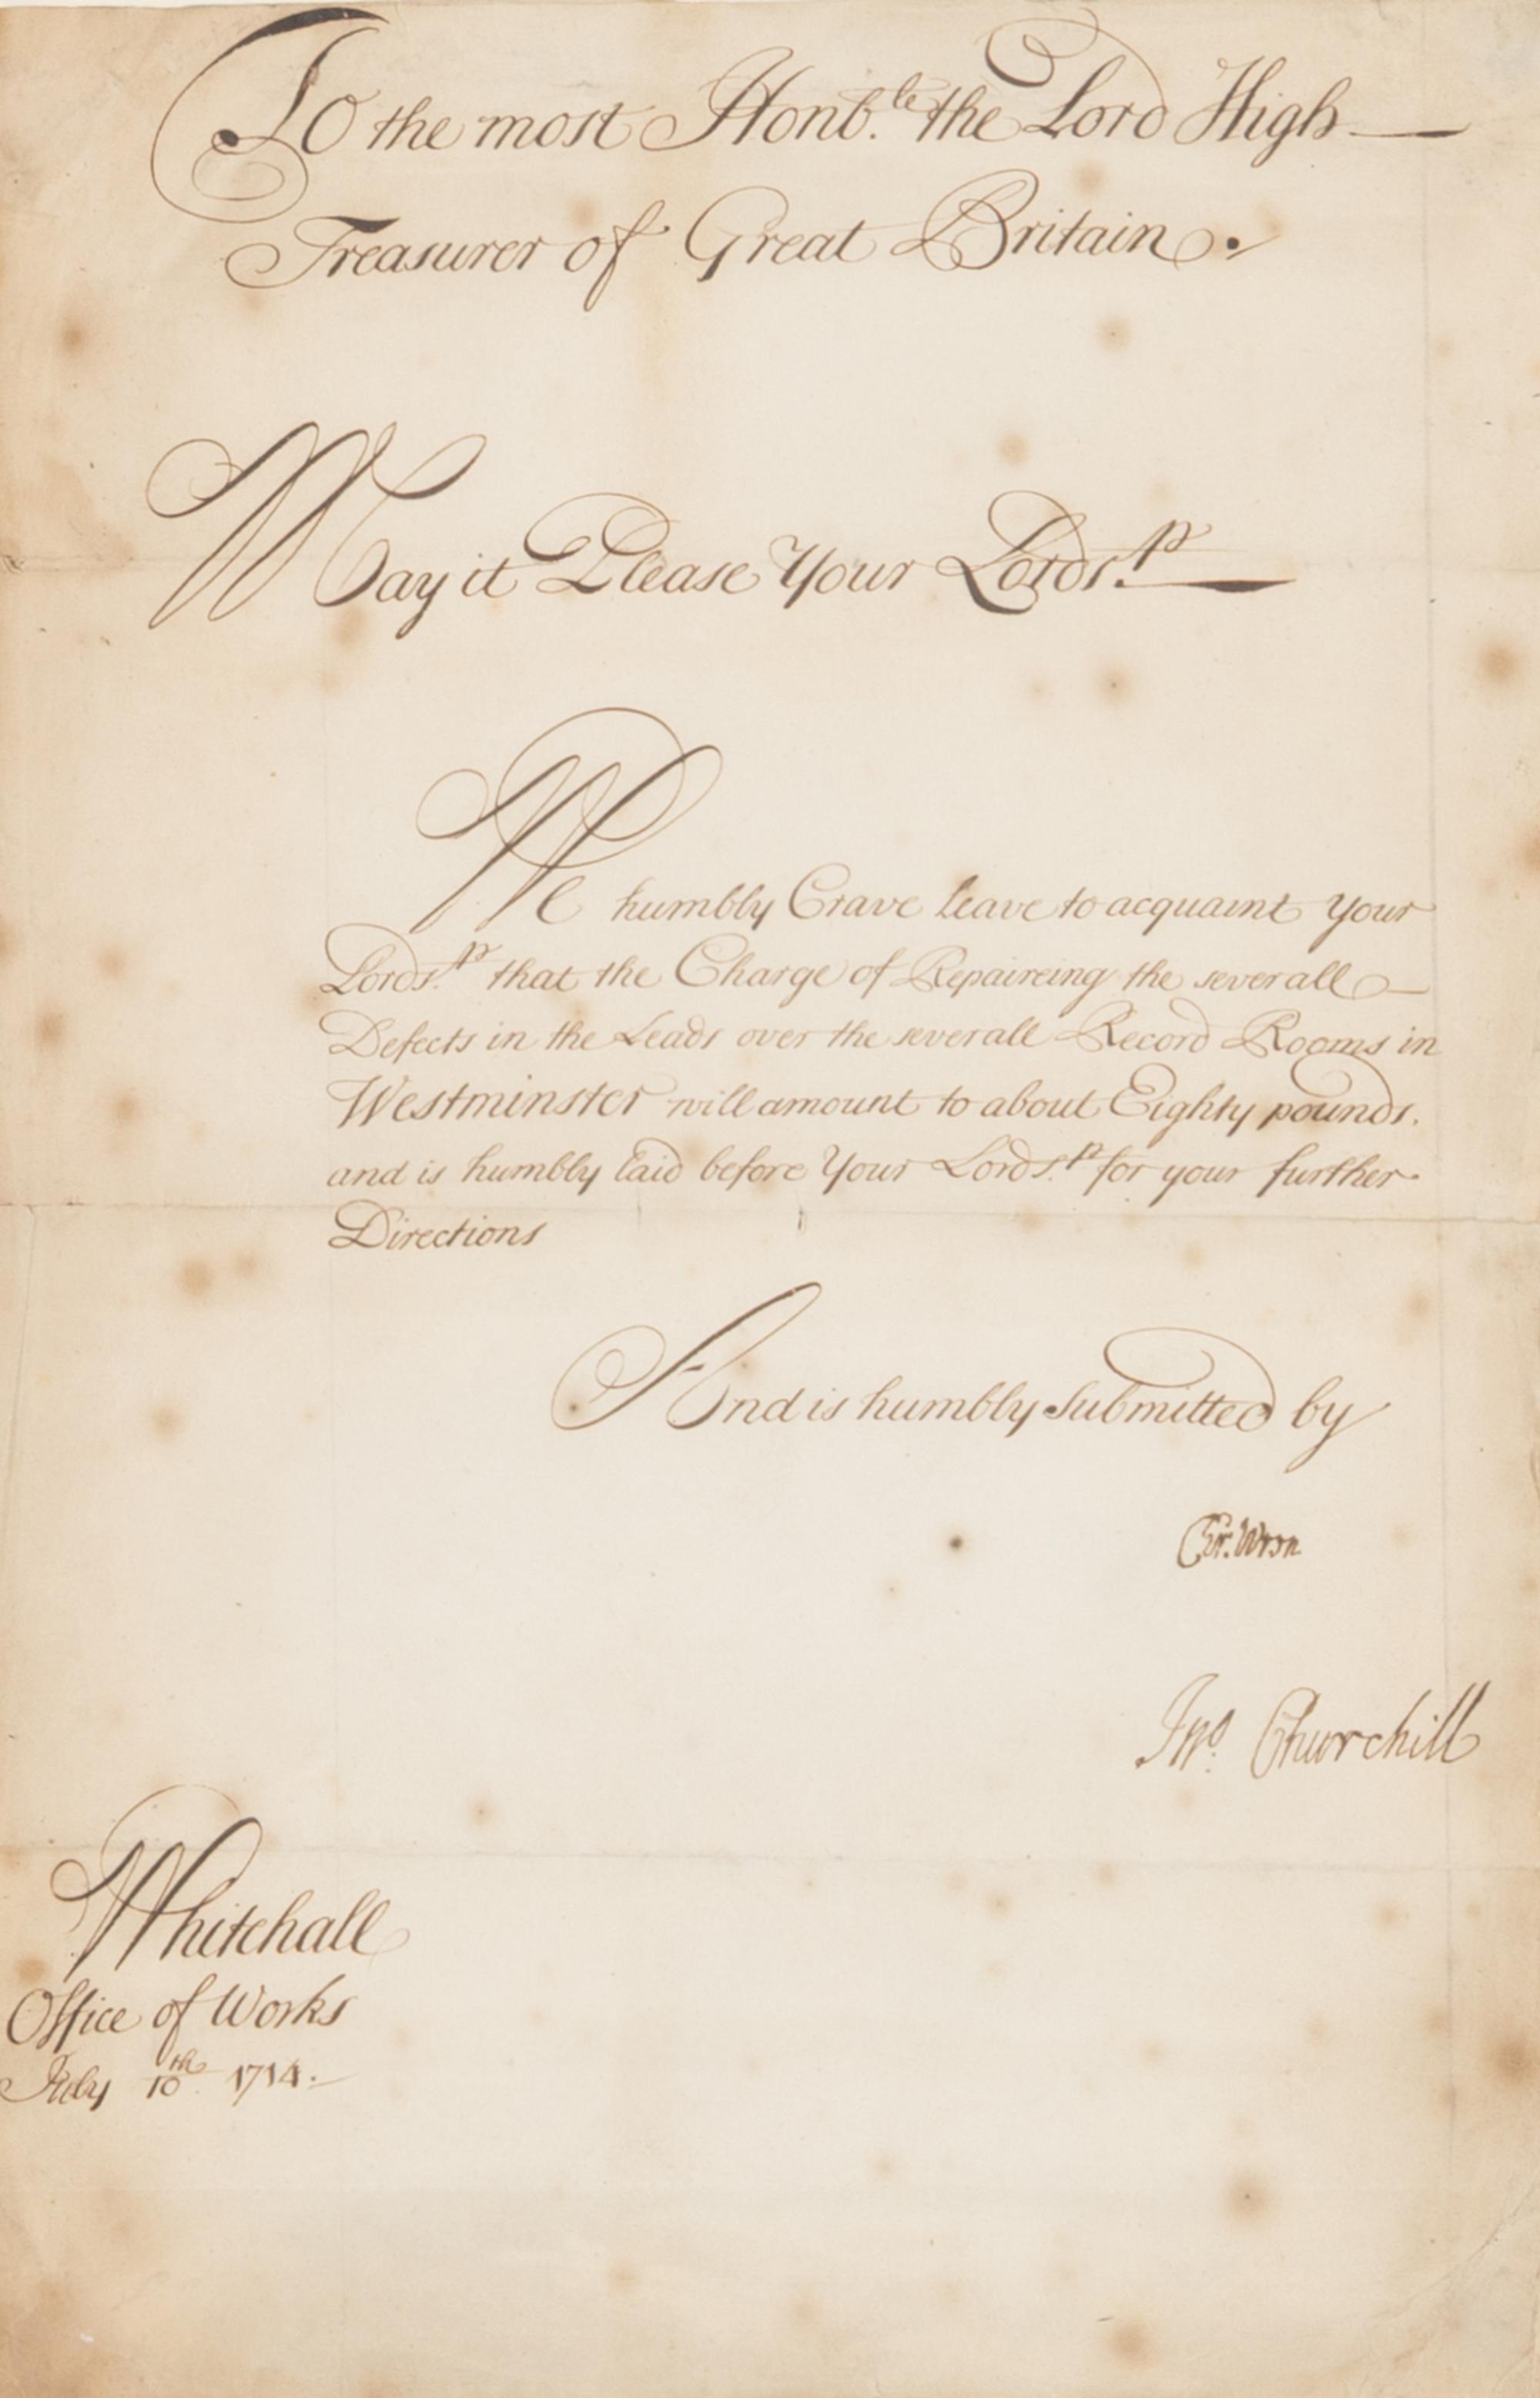 To the most Honb.le the Lord High
Treasurer of Great Britain.
May it Please Your Lords.p
We humbly Crave leave to acquaint Your
Lords.p that the Charge of Repaireing the severall
Defects in the Leads over the severall Record Rooms in
Westminster will amount to about Eighty pounds.
and is humbly laid before Your Lords.p for your further
Directions
And is humbly Submitted by
Chr. Wren
Jno. Churchill
Whitehall
Office of Works
July 10th. 1714.